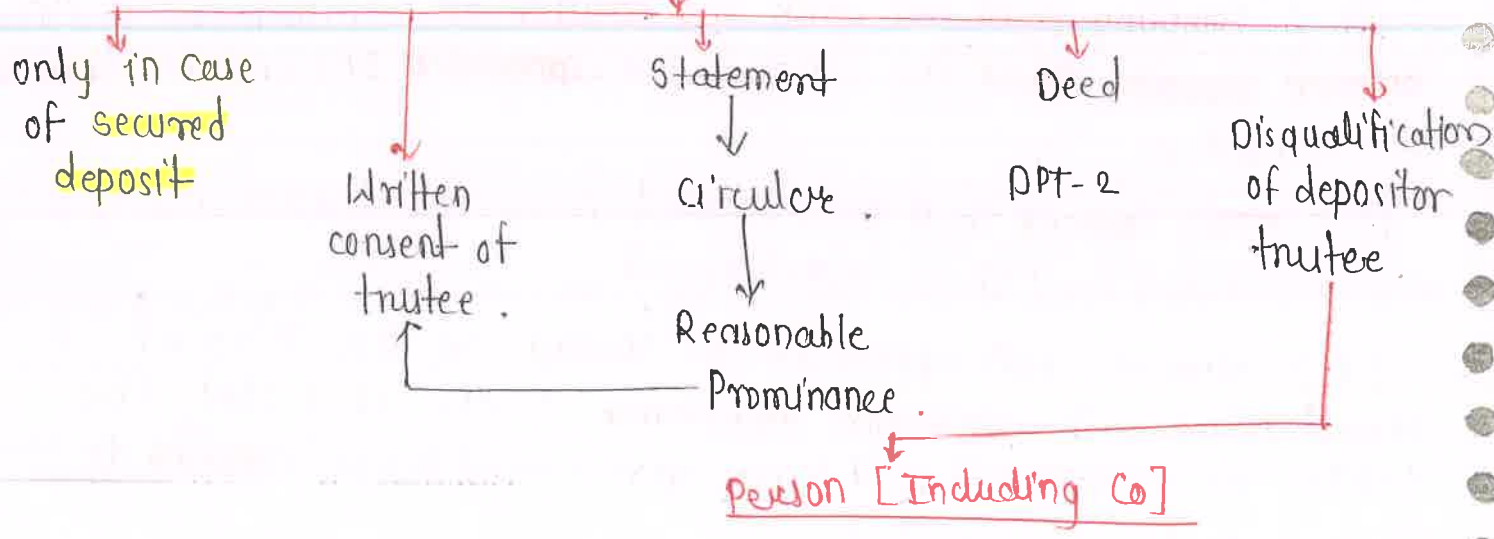 only in case
of secured
deposit
Written
consent of
trutee .
Statement
Circulare .
Reasonable
Prominance .
Deed
DPT-2
Disqualification
of depositor
trutee .
Person [Including Co]